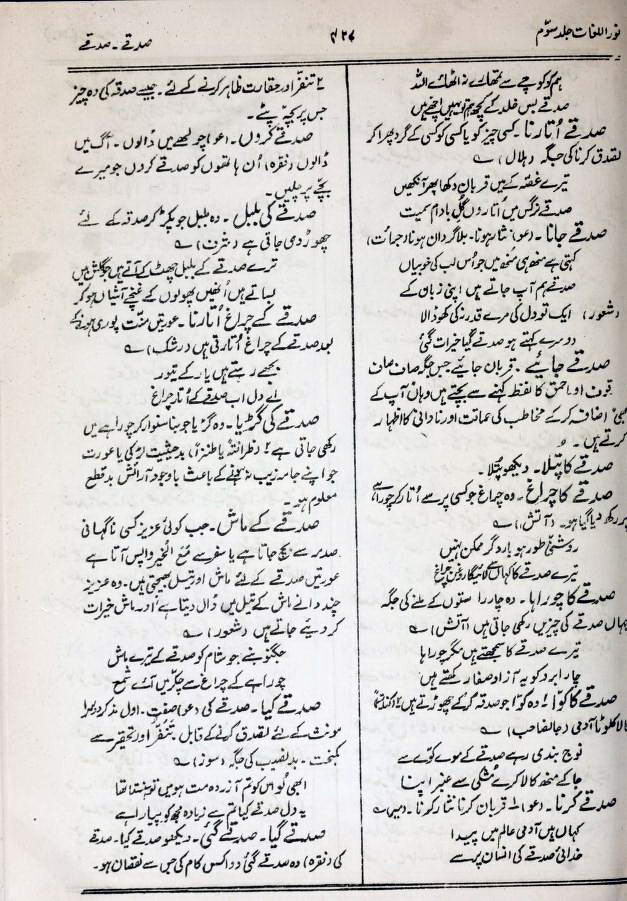 نور اللغات جلد سوم
۴۲۷
صدقے ۔ صدقے
ہم کو کوچے سے تمھارے نہ اٹھائے اللہ
صدقے بس خلد کے کچھ ہم تو نہیں اچھے ہیں
صدقے اُتارنا۔ کسی چیز کو یا کسی کو کسی کے گرد پھرا کر
تصدق کرنا کی جگہ (ہلال) ؎
تیرے غصّہ کے میں قربان دکھا پھر آنکھیں
صدقے نرگس میں اُتاروں گلِ بادام سمیت
صدقے جانا۔ (عو) نثار ہونا۔ بلا گردان ہونا (جرأت)
کہتی ہے منھ ہی منھ میں جو اُس لب کی خوبیاں
صدقے ہم آپ جاتے ہیں اپنی زبان کے
(شعور) ایک تو دل کی مرے قدر نہ کی کھو ڈالا
دوسرے کہتے ہو صدقے گیا خیرات گئی
صدقے جائیے۔ قربان جائیے جس جگہ صاف صاف
قوف او احمق کا لفظ کہنے سے بچتے ہیں وہاں آپ کے
اضافہ کر کے مخاطب کی حماقت اور نادانی کا اظہار
کرتے ہیں۔
صدقے کا پتلا۔ دیکھو پُتلا۔
صدقے کا چراغ۔ وہ چراغ جو کسی پر سے اُتار کر چوراہے
پر رکھ دیا گیا ہو۔ (آتش) ؎
روشنیٔ طور ہو بار دگر ممکن نہیں
تیرے صدقے کا کہاں سے لائیگا روغن چراغ
صدقے کا چوراہا۔ وہ چار راستوں کے ملنے کی جگہ
جہاں صدقے کی چیزیں رکھی جاتی ہیں (آتش) ؎
تیرے صدقے کا سمجھتے ہیں مگر چوراہا
چار ابرو کو یہ آزاد صفا رکھتے ہیں
صدقے کا کوّا۔ ۱ وہ کوّا جو صدقہ کر کے چھوڑتے ہیں
کالا کلوٹا آدمی (جانصاحب) ؎
نوج بندی رہے صدقے کے موے کوے سے
جا کے منھ کالا کرے مُشکی سے عنبر اپنا
صدقے کرنا۔ (عو) ۱ قربان کرنا نثار کرنا۔ (میر) ؎
کہاں ہیں آدمی عالم میں پیدا
خدائی صدقے کی انسان پر سے
۲ تنفّر اور حقارت ظاہر کرنے کے لئے۔ جیسے صدقہ کی وہ چیز
جس پر بچّہ پٹے۔
صدقے کروں۔ (عو) چولھے میں ڈالوں۔ آگ میں
ڈالوں (فقرہ) اُن ہاتھوں کو صدقے کردوں جو میرے
بچّے پر چلیں۔
صدقے کی بلبل۔ وہ بلبل جو پکڑ کر صدقہ کے لئے
چھوڑ دی جاتی ہے (شرف) ؎
ترے صدقے کے بلبل چھٹ کے آتے ہیں جو گلشن میں
بساتے ہیں اُنھیں پھولوں کے غنچے آشیاں ہو کر
صدقے کے چراغ اُتارنا۔ عورتیں منّت پوری ہونے کے
بعد صدقے کے چراغ اُتارتی ہیں (رشک) ؎
بجھے رہتے ہیں یار کے تیور
اے دل اب صدقے کے اُتار چراغ
صدقے کی گڑیا۔ وہ گڑیا جو بنا سنوار کر چوراہے میں
رکھی جاتی ہے ۲ (ظرافتہً یا طنزاً) بدحیثیت لڑکی یا عورت
جو اپنے جامہ زیب نہ ہونے کے باعث باوجود آرائش بدقطع
معلوم ہو۔
صدقے کے ماش۔ جب کوئی عزیز کسی ناگہانی
صدمہ سے بچ جاتا ہے یا سفر سے مع الخیر واپس آتا ہے
عورتیں صدقے کے لئے ماش اور تیل بھیجتی ہیں۔ وہ عزیز
چند دانے ماش کے تیل میں ڈال دیتا ہے اور ماش خیرات
کر دیے جاتے ہیں (شعور) ؎
جگنو بنے جو شام کو صدقے کے تیرے ماش
چوراہے کے چراغ سے چکّر میں آئے شمع
صدقے گیا۔ صدقے کی (عو) صفت۔ اول مذکر دوسرا
مونث کے لئے تصدق کرنے کے قابل۔ تنفّر اور تحقیر سے
کمبخت۔ بدنصیب کی جگہ (سوز) ؎
ابھی تو اس کو تم آزردہ مت ہو میں تو ہنستا تھا
یہ دل صدقے کیا تم سے زیادہ مجھ کو پیارا ہے
صدقے گیا۔ صدقے گئی۔ دیکھو صدقے کیا۔ صدقے
کی (فقرہ) وہ صدقے گئی دورا کس کام کی جس سے نقصان ہو۔